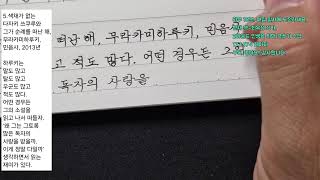 5.색채가 없는
다자키 쓰쿠루와
그가 순례를 떠난 해,
무라카미하루키,
민음사, 2013년
하루키는
말도 많고
탈도 많고
우군도 많고
적도 많다.
어떤 경우든
그의 소설을
읽고 나서 떠들자.
'왜 그는 그토록
많은 독자의
사랑을 받을까.
이게 정말 다일까'
생각하면서 읽는
재미가 있다.
떠난 해, 무라카미하루키, 민음
고 적도 많다. 어떤 경우든 그
독자의 사랑을